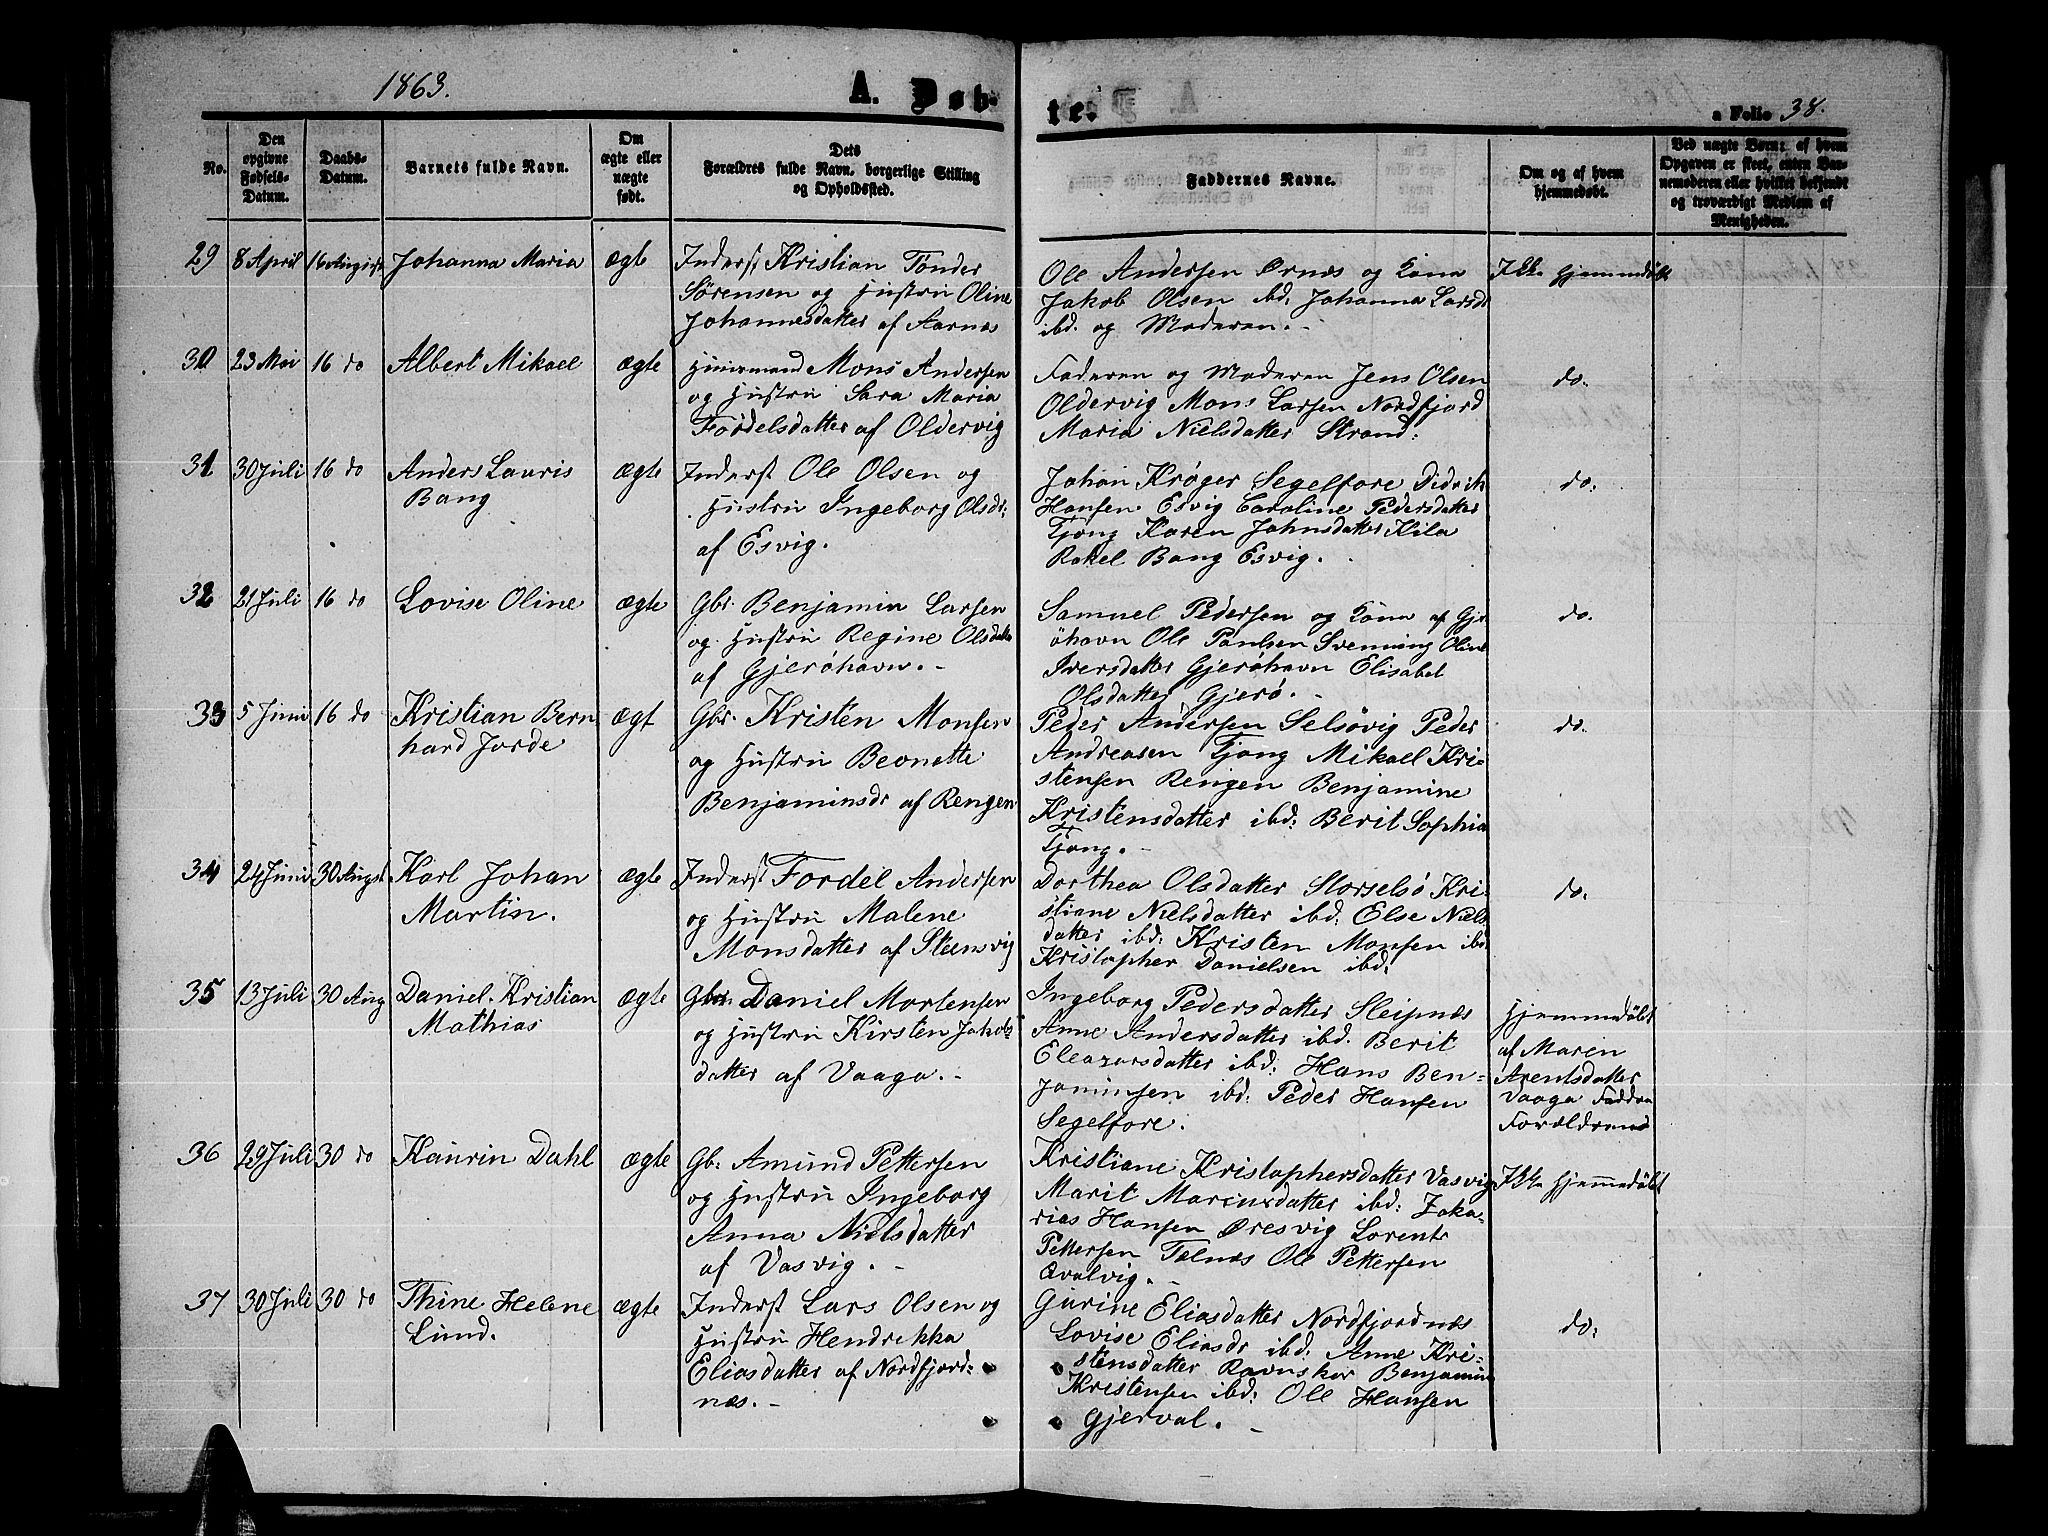 1863.
A. Døb-
te.
a Folio 38.
No.
Den opgivne Fødsels-Datum.
Daabs-Datum.
Barnets fulde Navn.
Om ægte eller uægte født.
Dets Forældres fulde Navn, borgerlige Stilling og Opholdssted.
Faddernes Navne.
Om og af hvem hjemmedøbt.
Ved uægte Børn: af hvem Opgaven er skeet, enten Barnemoderen eller hvilket bekjendt og troværdigt Medlem af Menigheden.
29 8 April 16 August Johanna Maria ægte
Inderst Kristian Tønder
Sørensen og Hustru Oline
Johannesdatter af Aarnæs
Ole Andersen Ørnæs og Kona
Jakob Olsen ibd. Johanna Larsdr
ibd. og Moderen.-
Ikke hjemmedøbt
30 23 Mai 16 do Albert Mikael ægte
Huusmand Mons Andersen
og Hustru Sara Maria
Fördelsdatter af Oldervig
Faderen og Moderen Jens Olsen
Oldervig Mons Larsen Nordfjord
Maria Nielsdatter Strand:
do.
31 30 Juli 16 do Anders Lauris
Bang
ægte
Inderst Ole Olsen og
Hustru Ingeborg Olsdr:
af Esvig.
Johan Krøger Segelfore Didrik
Hansen Esvig Caroline Pedersdatter
Tjong Karen Johnsdatter Kila
Rakel Bang Esvig.
do:
32 21 Juli 16 do Lovise Oline ægte
Gbr. Benjamin Larsen
og Hustru Regine Olsdatter
af Gjerøhavn.-
Samuel Pedersen og Kona af Gjer
øhavn Ole Paulsen Svenning Oline
Iversdatter Gjerøhavn Elisabet
Olsdatter Gjerø.-
do.
33 5 Juni 16 do Kristian Bern
hard Jorde
ægt
Gbr. Kristen Monsen
og Hustru Beonette
Benjaminsdr af Rengen
Peder Andersen Selsøvig Peder
Andreasen Tjong Mikael Kri-
stensen Rengen Benjamine
Kristensdatter ibd: Berit Sophia
Tjong.-
do.
34 24 Juni 30 Augst Karl Johan
Martin.
ægte
Inderst Fordel Andersen
og Hustru Malene
Monsdatter af Steensvig
Dorthea Olsdatter Storselsø Kri-
stiane Nielsdatter ibd: Else Niels
datter ibd: Kristen Monsen ibd
Kristopher Danielsen ibd:
do.
35 13 Juli 30 Aug Daniel Kristian
Mathias
ægte
Gbr: Daniel Mortensen
og Hustru Kirsten Jakobs
datter af Vaaga.-
Ingeborg Pedersdatter Sleipnæs
Anne Andersdatter ibd. Berit
Eleazarsdatter ibd: Hans Ben-
jaminsen ibd: Peder Hansen
Segelfore.
Hjemmedøbt
af Maren
Arentsdatter
Vaaga Faddre
Forældrene
36 29 Juli 30 do Kaurin Dahl ægte
Gb: Amund Pettersen
og Hustru Ingeborg
Anna Nielsdatter
af Vasvig.-
Kristiane Kristophersdatter Vasvig
Marit Mariusdatter ibd: Zaka-
rias Hansen Øresvig Lorents
Pettersen Telnæs Ole Pettersen
Qvalvig.-
Ikke hjemmedøbt
37 30 Juli 30 do Thine Helene
Lund.
ægte
Inderst Lars Olsen og
Hustru Hendrekka
Eliasdatter af Nordfjord-
næs.-
Gurine Eliasdatter Nordfjordnæs
Lovise Eliasdr ibd: Anne Kri-
stensdatter Ravnskar Benjamin
Kristensen ibd: Ole Hansen
Gjerval.-
do: